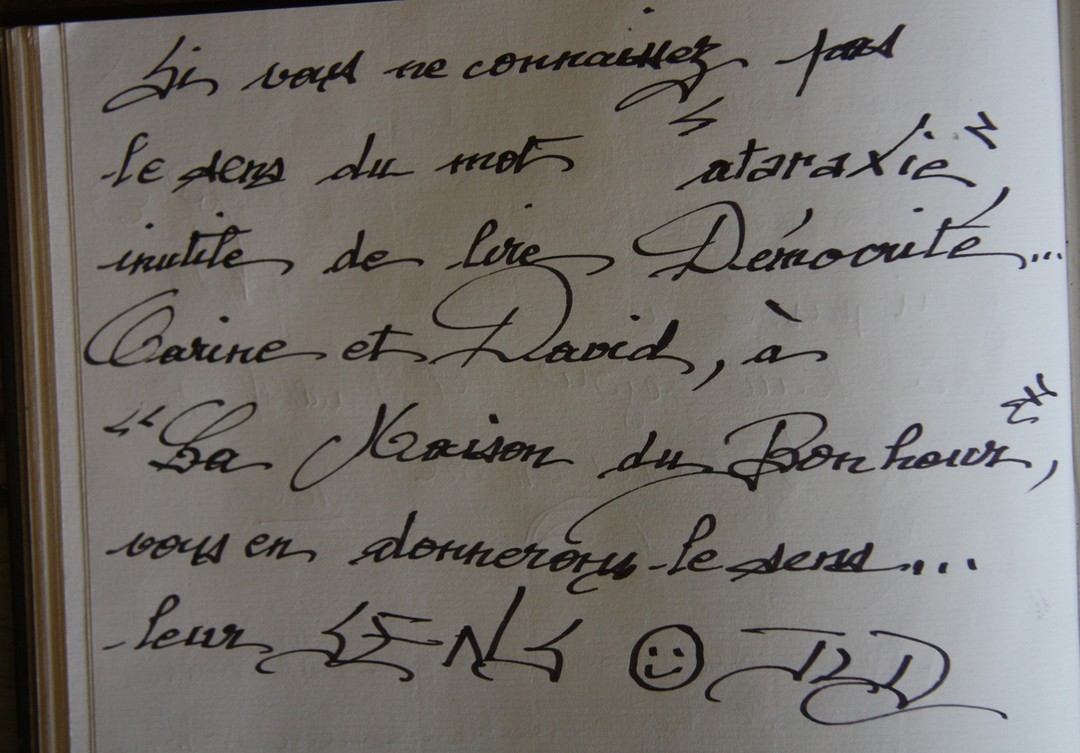 Si vous ne connaissez pas
le sens du mot "ataraxie",
inutile de lire Démocrite...
Carine et David, à
"La Maison du Bonheur",
vous en donnerons le sens...
leur SENS ☺